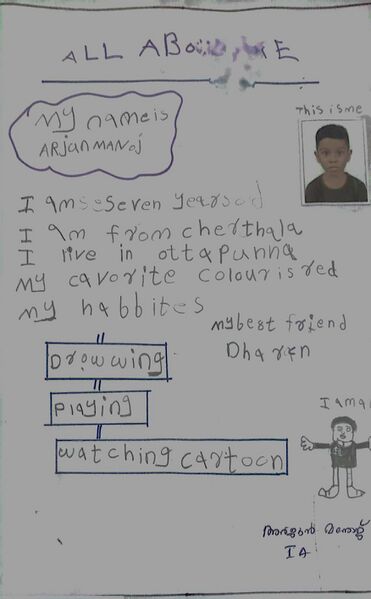 ALL ABOUT ME
This is me
My name is
ARJAN MANOJ
I am seseven years od
I am from cherthala
I live in ottapunna
My cavorite colour is red
My habbites
My best friend
Dharen
Drowwing
Playing
watching cartoon
I am a
അർജുൻ മനോജ്
I A